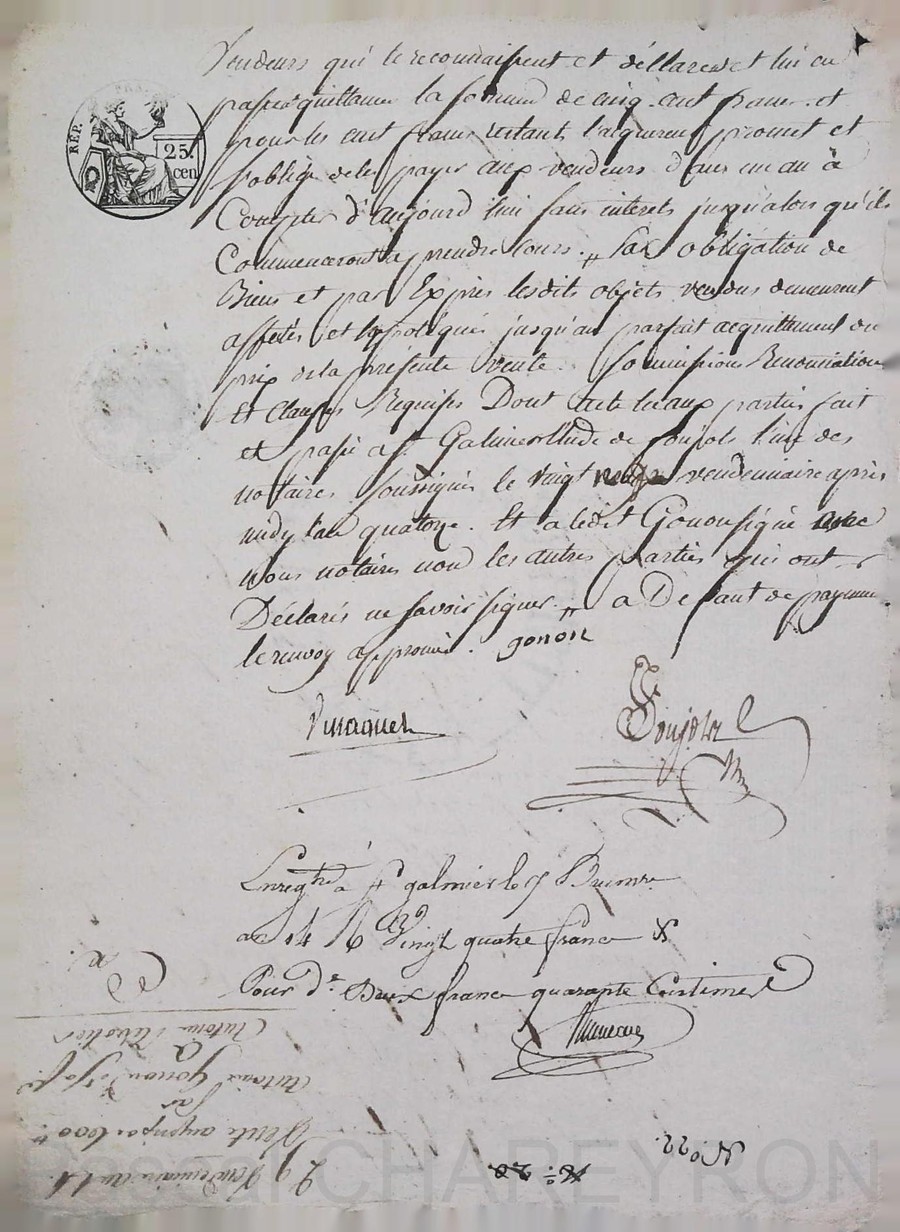 REP. FRA
25.
cen
Vendeurs qui le reconnaissent et déllarent et lui en
passent quittance la somme de cinq cent francs et
pour les cent francs restant l'acquereur promet et
s'oblige de les payer aux vendeurs dans un an à
Compter d'aujourd'hui sans interets jusqu'alors qu'ils
Commenceront a prendre cours. par obligation de
Biens et par Exprès lesdits objets vendus demeurent
affétés et hypotéqués jusqu'au parfait acquittement du
prix de la presente vente. Soumissions Renonciations
Et Clauses Requises Dont acte lu aux parties fait
et passé a St Galmier Etude de Poujols l'un des
notaires soussignés le vingt neuf vendemiaire après
midy l'an quatorze. Et a ledit Gonon signé avec
Nous notaires non les autres parties qui ont
Déclarés ne savoir signer. a Defaut de payement
le renvoy approuvé. gonon
Poujols
Enregtré à St galmier le 7 Brumre
an 14 Vingt quatre francs
Pour de Deux francs quarante Centimes
No: 20
No: 22.
29 Vendemiaire an 14
Vente au prix 600 tt
Par
Antoine Gonon
A
Antoine